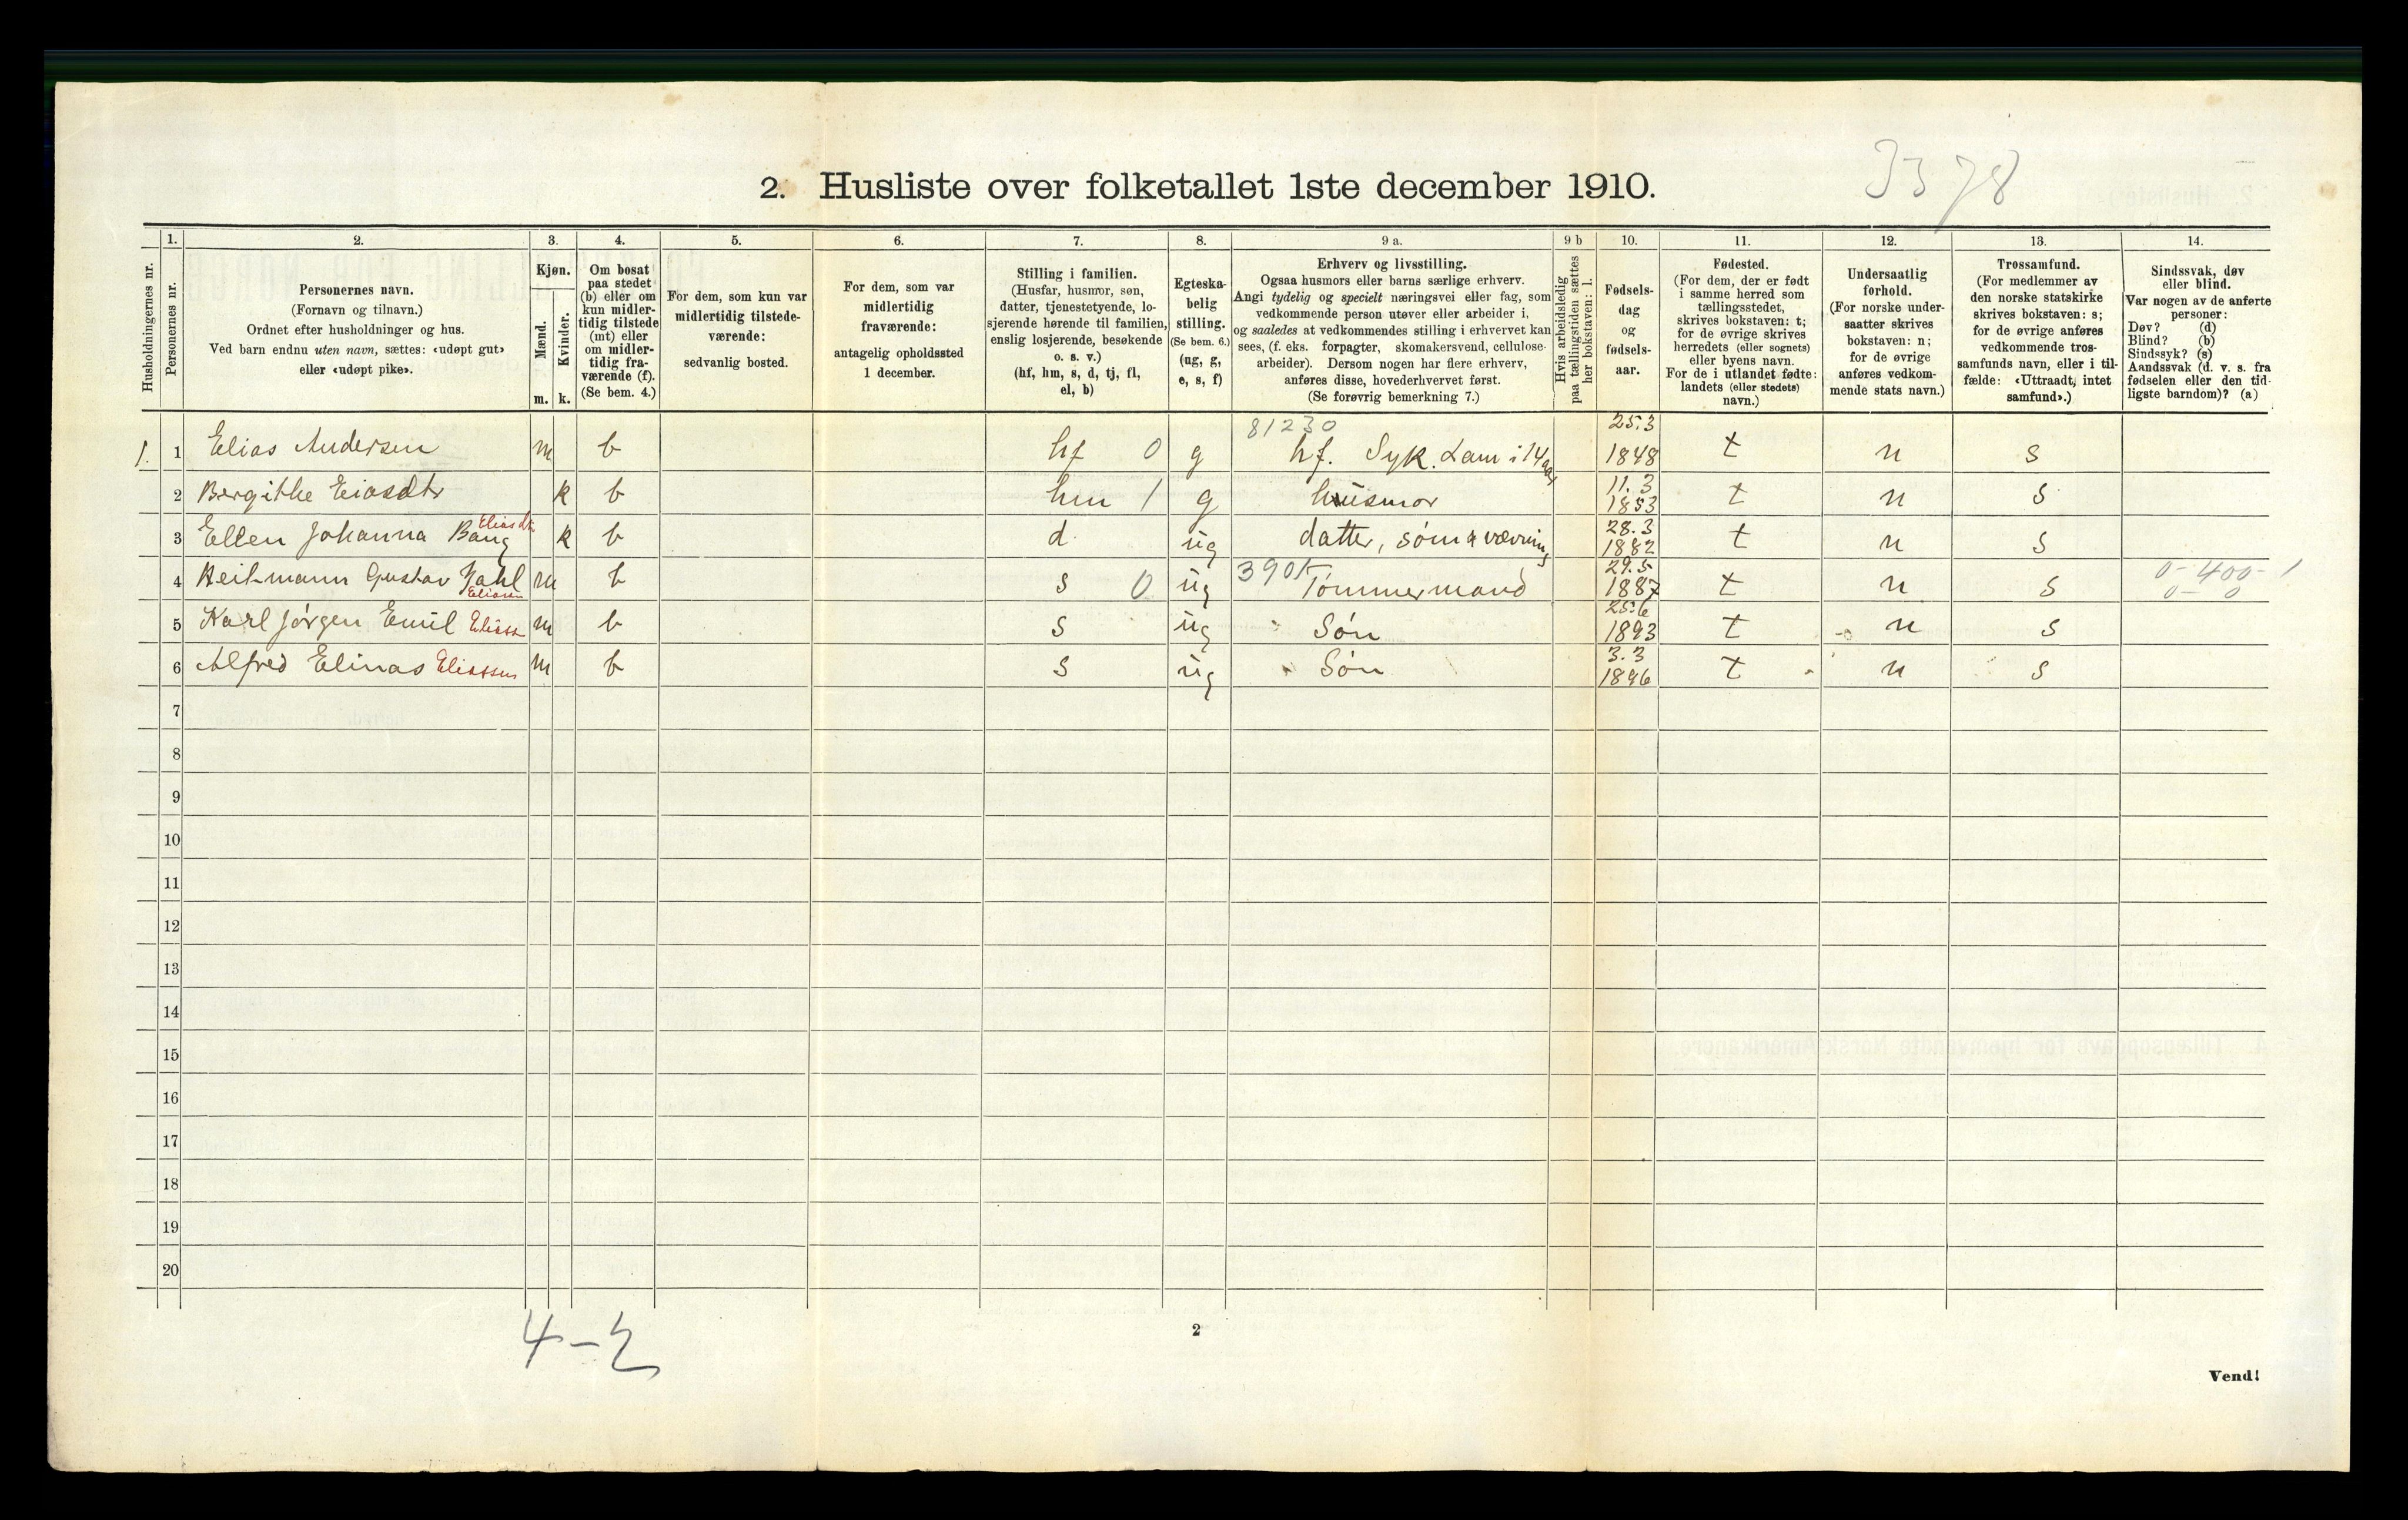 3378
2. Husliste over folketallet 1ste december 1910.
Husholdningernes nr.
1.
Personernes nr.
2.
Personernes navn.
(Fornavn og tilnavn.)
Ordnet efter husholdninger og hus.
Ved barn endnu uten navn, sættes: «udøpt gut»
eller «udøpt pike».
3.
Kjøn.
Mænd.
Kvinder.
m. k.
4.
Om bosat
paa stedet
(b) eller om
kun midler-
tidig tilstede
(mt) eller
om midler-
tidig fra-
værende (f).
(Se bem. 4.)
5.
For dem, som kun var
midlertidig tilstede-
værende:
sedvanlig bosted.
6.
For dem, som var
midlertidig
fraværende:
antagelig opholdssted
1 december.
7.
Stilling i familien.
(Husfar, husmor, søn,
datter, tjenestetyende, lo-
sjerende hørende til familien,
enslig losjerende, besøkende
o. s. v.)
(hf, hm, s, d, tj, fl,
el, b)
8.
Egteska-
belig
stilling.
(Se bem. 6.)
(ug, g,
e, s, f)
9 a.
Erhverv og livsstilling.
Ogsaa husmors eller barns særlige erhverv.
Angi tydelig og specielt næringsvei eller fag, som
vedkommende person utøver eller arbeider i,
og saaledes at vedkommendes stilling i erhvervet kan
sees, (f. eks. forpagter, skomakersvend, cellulose-
arbeider). Dersom nogen har flere erhverv,
anføres disse, hovederhvervet først.
(Se forøvrig bemerkning 7.)
9 b
Hvis arbeidsledig
paa tællingstiden sættes
her bokstaven: l.
10.
Fødsels-
dag
og
fødsels-
aar.
11.
Fødested.
(For dem, der er født
i samme herred som
tællingsstedet,
skrives bokstaven: t;
for de øvrige skrives
herredets (eller sognets)
eller byens navn.
For de i utlandet fødte:
landets (eller stedets)
navn.)
12.
Undersaatlig
forhold.
(For norske under-
saatter skrives
bokstaven: n;
for de øvrige
anføres vedkom-
mende stats navn.)
13.
Trossamfund.
(For medlemmer av
den norske statskirke
skrives bokstaven: s;
for de øvrige anføres
vedkommende tros-
samfunds navn, eller i til-
fælde: «Uttraadt, intet
samfund».)
14.
Sindssvak, døv
eller blind.
Var nogen av de anførte
personer:
Døv? (d)
Blind? (b)
Sindssyk? (s)
Aandssvak (d. v. s. fra
fødselen eller den tid-
ligste barndom)? (a)
81230 25.3
1. 1 Elias Andersen m b hf 0 g hf. Syk. Lam i 14 aar 1848 t n s
2 Bergithe Eiasdtr k b hm 1 g husmor 11.3 1853 t n s
3 Ellen Johanna Bang Eliasdtr k b d ug datter, søm & vævning 28.3 1882 t n s
4 Heitmann Gustav Dahl Eliasen m b s 0 ug 390 Tømmermand 29.5 1887 t n s 0-400-1
0- 0
5 Karl Jørgen Emil Eliass m b s ug Søn 25.6 1893 t n s
6 Alfred Elinas Eliassen m b s ug Søn 3.3 1896 t n s
7
8
9
10
11
12
13
14
15
16
17
18
19
20
4-2
2
Vend!